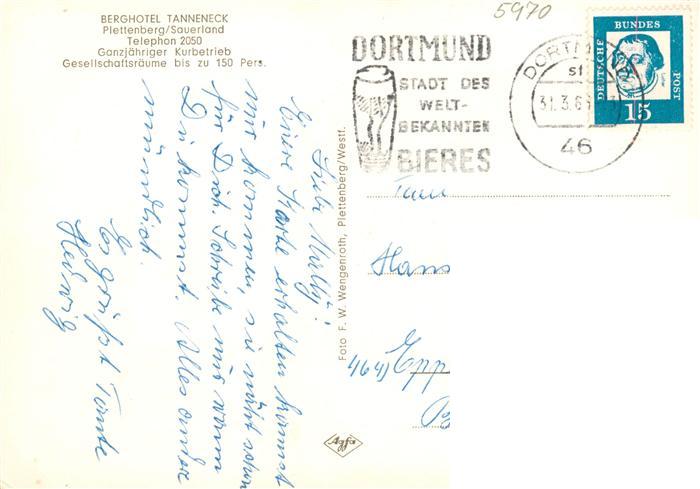 BERGHOTEL TANNENECK
Plettenberg/Sauerland
Telephon 2050
Ganzjähriger Kurbetrieb
Gesellschaftsräume bis zu 150 Pers.
5970
DORTMUND
STADT DES
WELT-
BEKANNTEN
BIERES
DORTM
31.3.6
46
DEUTSCHE
BUNDES
POST
15
Liebe Milly!
Deine Karte erhalten kannst
mir kommen, sie wäscht schon
für Dich. Schreibe nur wann
Du kommst. Alles andere
mündlich.
Es grüßt Tante
Hedwig
Foto F. W. Wengenroth, Plettenberg/Westf.
Hans
Epp
Agfa